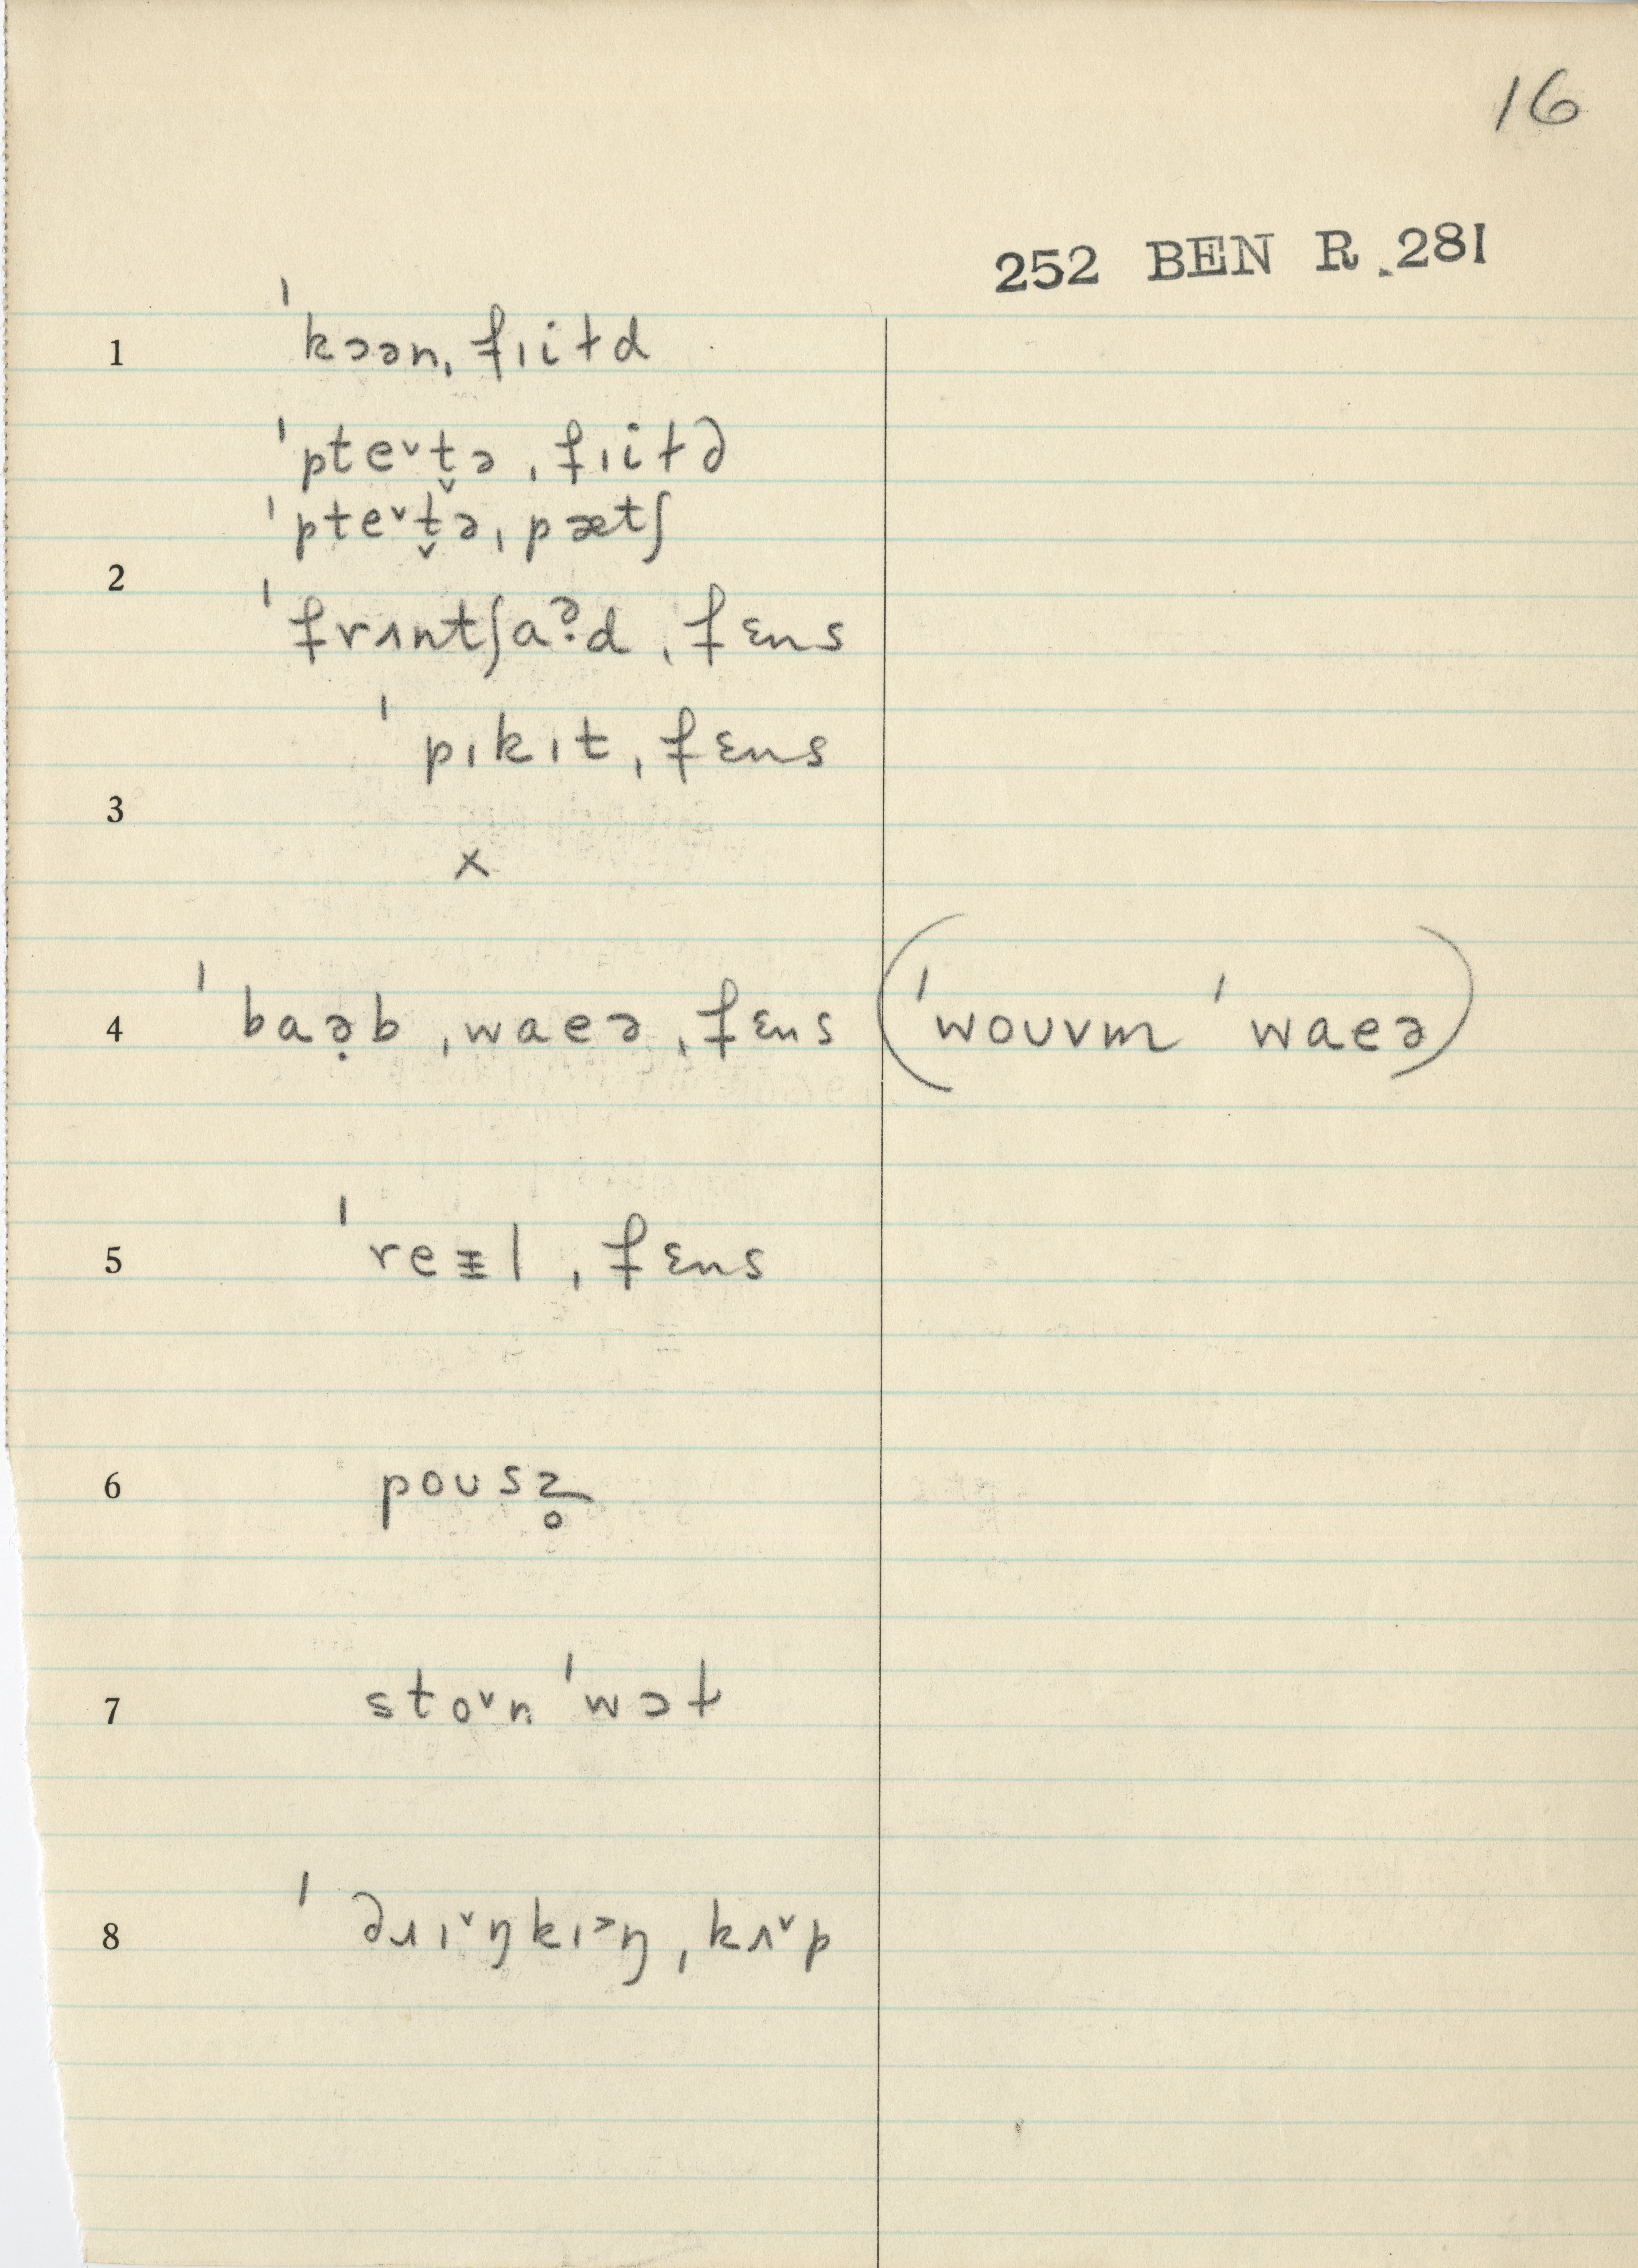 16
252 BEN R .281
1 ˈkɔən ˌfɪiɫd
ˈpteᵛt̬ə ˌfɪiɫd
ˈpteᵛt̬ə ˌpætʃ
2
ˈfrʌntʃaə̣d ˌfɛns
ˈpɪkɪt ˌfɛns
3
x
4 ˈbaə̣b ˌwaeə ˌfɛns (ˈwouvm ˈwaeə)
5 ˈreɪl ˌfɛns
6 pousz̥
7 stoᵛn ˈwɔɫ
8 ˈdɹɪᵛŋkɪ˃ŋ ˌkʌᵛp